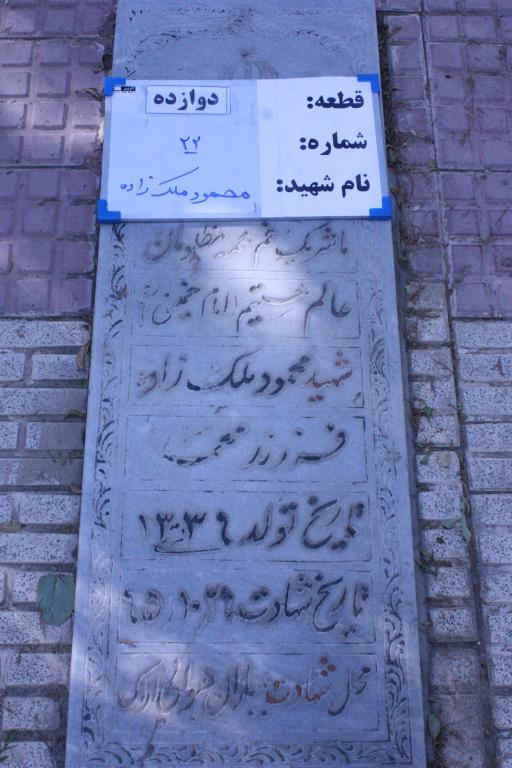 قطعه: دوازده
شماره: ۲۲
نام شهید: محمود ملک زاده
ما شریک غم همه مظلومان
عالم هستیم امام خمینی
شهید محمود ملک زاده
فرزند محمد
تاریخ تولد ۱۳۰۳
تاریخ شهادت
محل شهادت بمباران هوائی اراک